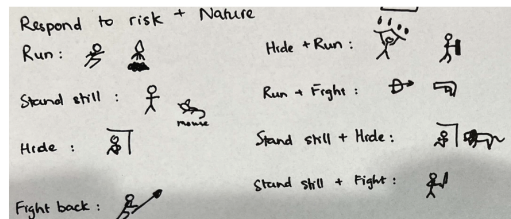 Respond to risk + Nature
Run :
Stand still :
mouse
Hide :
Fight back :
Hide + Run :
Run + Fight :
Stand still + Hide :
Stand still + Fight :